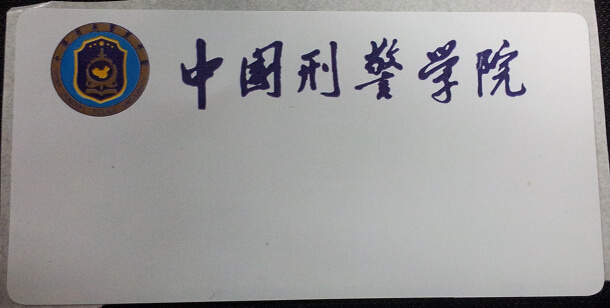 中国刑警学院